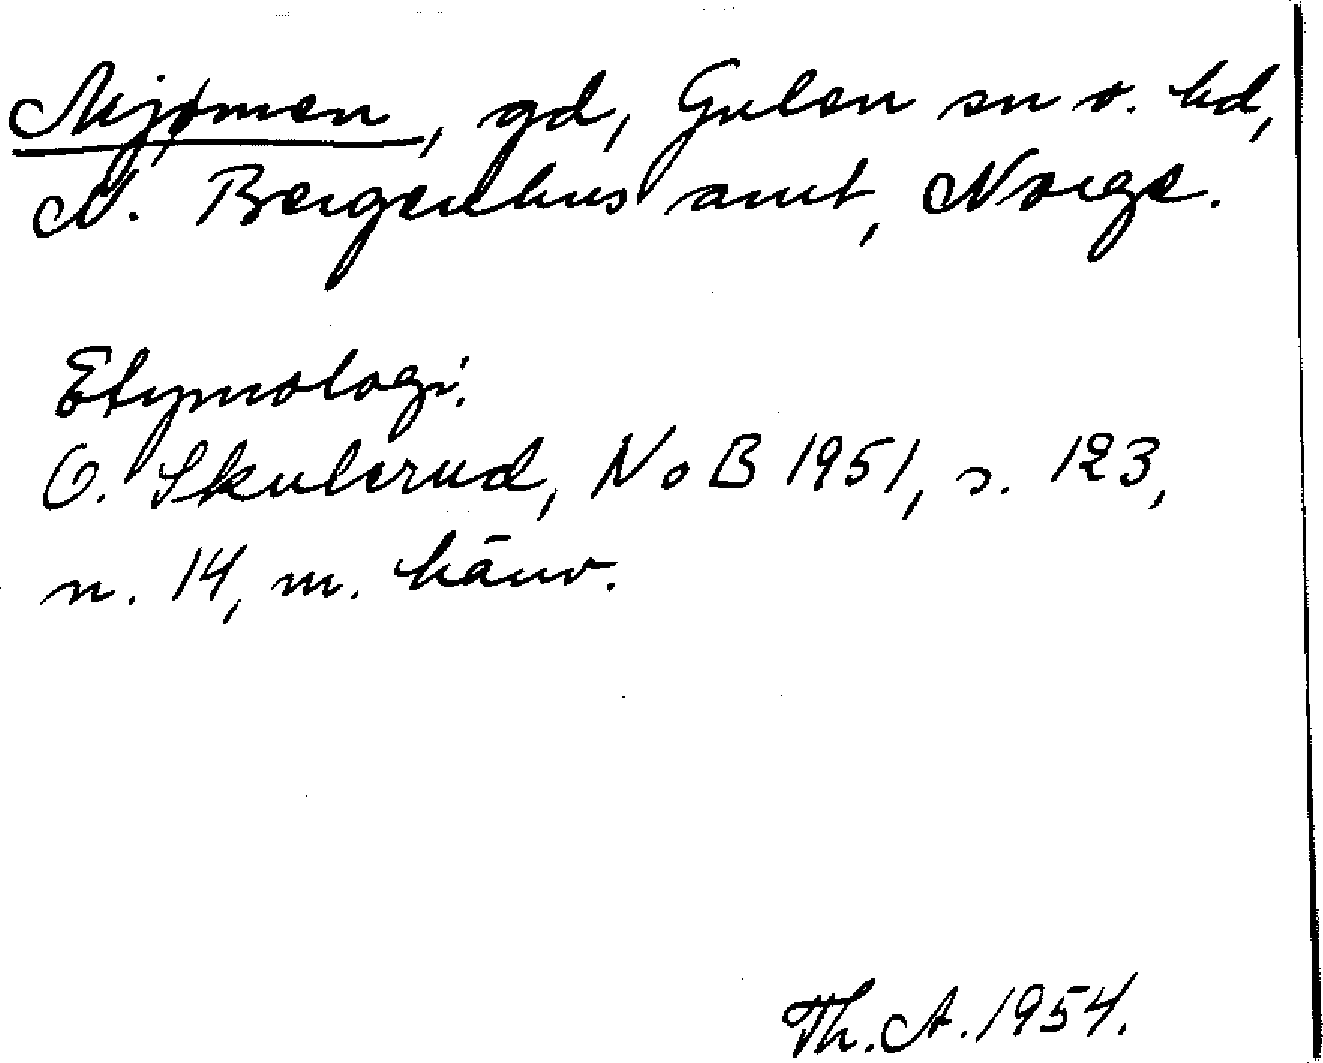 Mjømen, gd, Gulen sn o. hd,
N. Bergenhus amt, Norge.
Etymologi:
O. Skulerud, NoB 1951, s. 123,
n. 14, m. hänv.
Th. A. 1954.